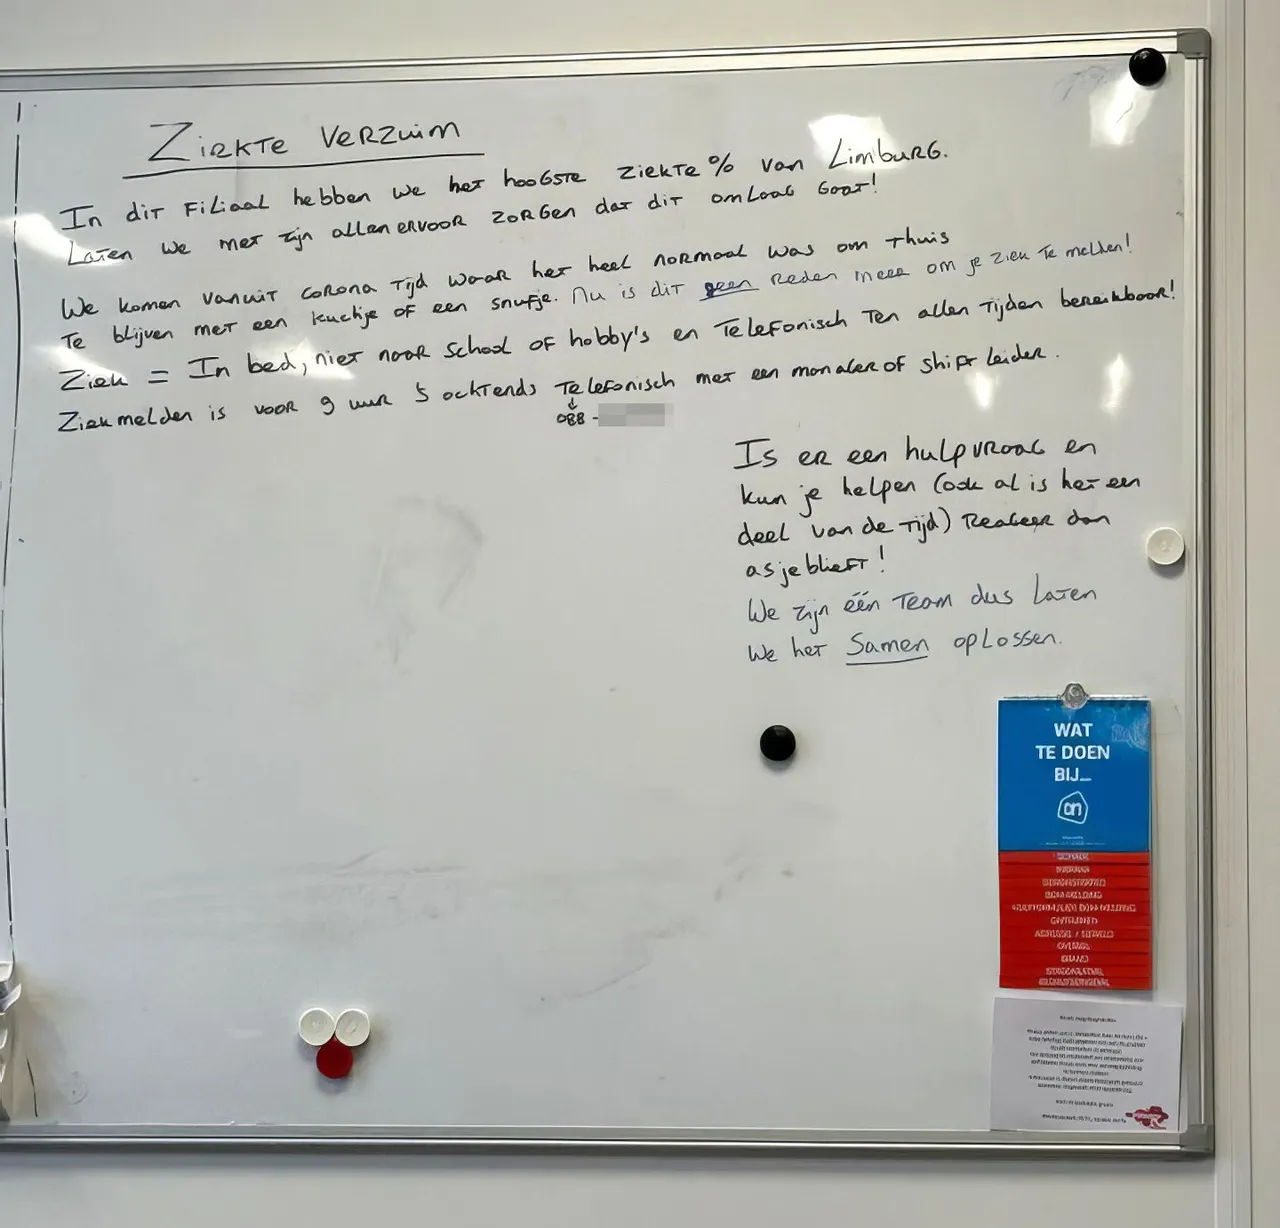 Ziekte verzuim
In dit filiaal hebben we het hoogste ziekte % van Limburg.
Laten we met zijn allen ervoor zorgen dat dit omlaag gaat!
We komen vanuit corona tijd waar het heel normaal was om thuis
te blijven met een kuchje of een snufje. Nu is dit geen reden meer om je ziek te melden!
Ziek = In bed, niet naar school of hobby's en telefonisch ten allen tijden bereikbaar!
Ziekmelden is voor 9 uur 's ochtends telefonisch met een manager of shift leider.
088 -
Is er een hulpvraag en
kun je helpen (ook al is het een
deel van de tijd) Reageer dan
asjeblieft!
We zijn één team dus laten
we het samen oplossen.
WAT
TE DOEN
BIJ...
ah